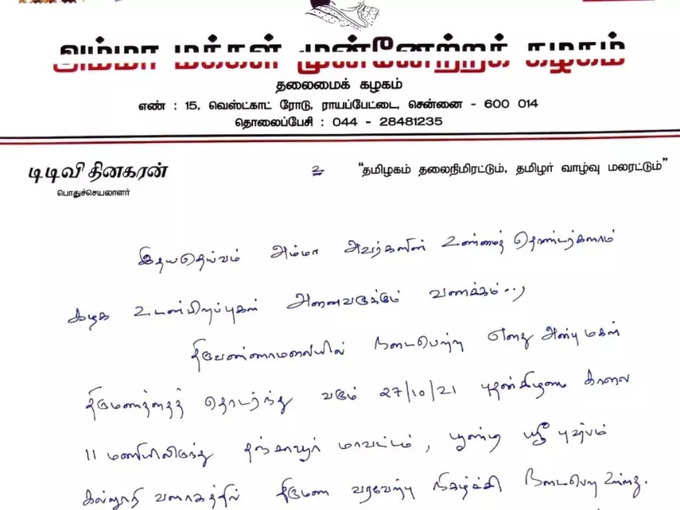 அம்மா மக்கள் முன்னேற்றக் கழகம்
தலைமைக் கழகம்
எண் : 15, வெஸ்ட்காட் ரோடு, ராயப்பேட்டை, சென்னை - 600 014
தொலைப்பேசி : 044 - 28481235
டிடிவி தினகரன்
பொதுச்செயலாளர்
உ
"தமிழகம் தலைநிமிரட்டும், தமிழர் வாழ்வு மலரட்டும்"
இதயதெய்வம் அம்மா அவர்களின் உண்மைத் தொண்டர்களாம்
கழக உடன்பிறப்புகள் அனைவருக்கும் வணக்கம்..,
திருவண்ணாமலையில் நடைபெற்ற எனது அன்பு மகள்
திருமணத்தைத் தொடர்ந்து வரும் 27/10/21 புதன்கிழமை காலை
11 மணியிலிருந்து தஞ்சாவூர் மாவட்டம், பூண்டி ஸ்ரீ புஷ்பம்
கல்லூரி வளாகத்தில் திருமண வரவேற்பு நிகழ்ச்சி நடைபெற உள்ளது.